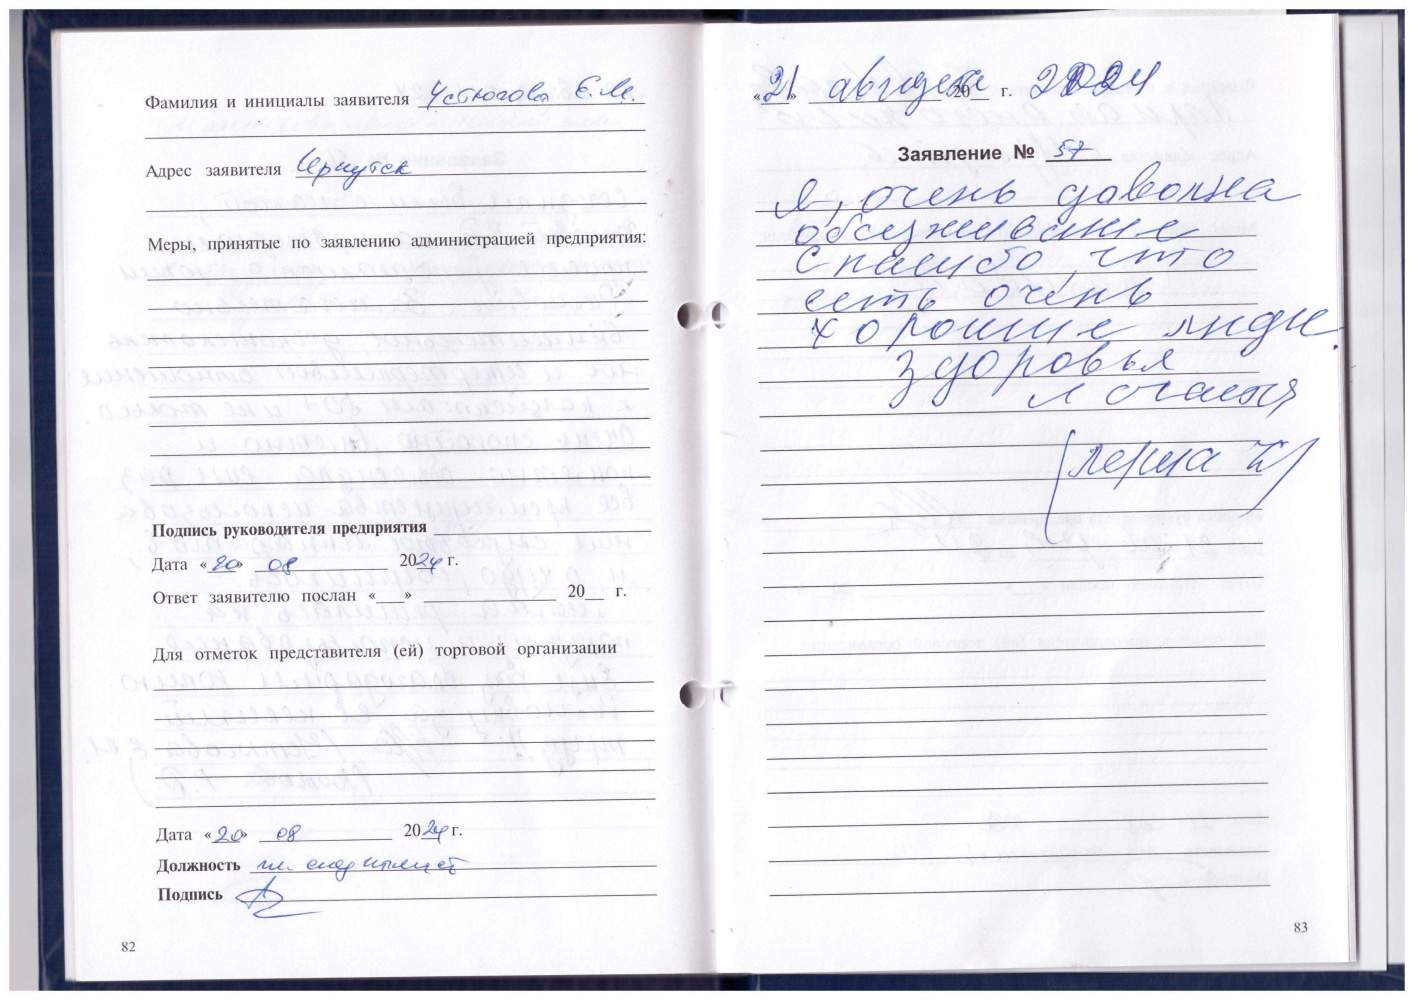 Фамилия и инициалы заявителя Устюгова Е.М.
Адрес заявителя Иркутск
Меры, принятые по заявлению администрацией предприятия:
Подпись руководителя предприятия
Дата «20» 08 2024 г.
Ответ заявителю послан «__» ____________ 20__ г.
Для отметок представителя (ей) торговой организации
Дата «20» 08 2024 г.
Должность гл. специалист
Подпись
82
«21» августа 20__ г. 2024
Заявление № 57
Я, очень доволна
обсуживание
Спасибо, что
есть очень
хорошие люди.
Здоровья
и счастя
83